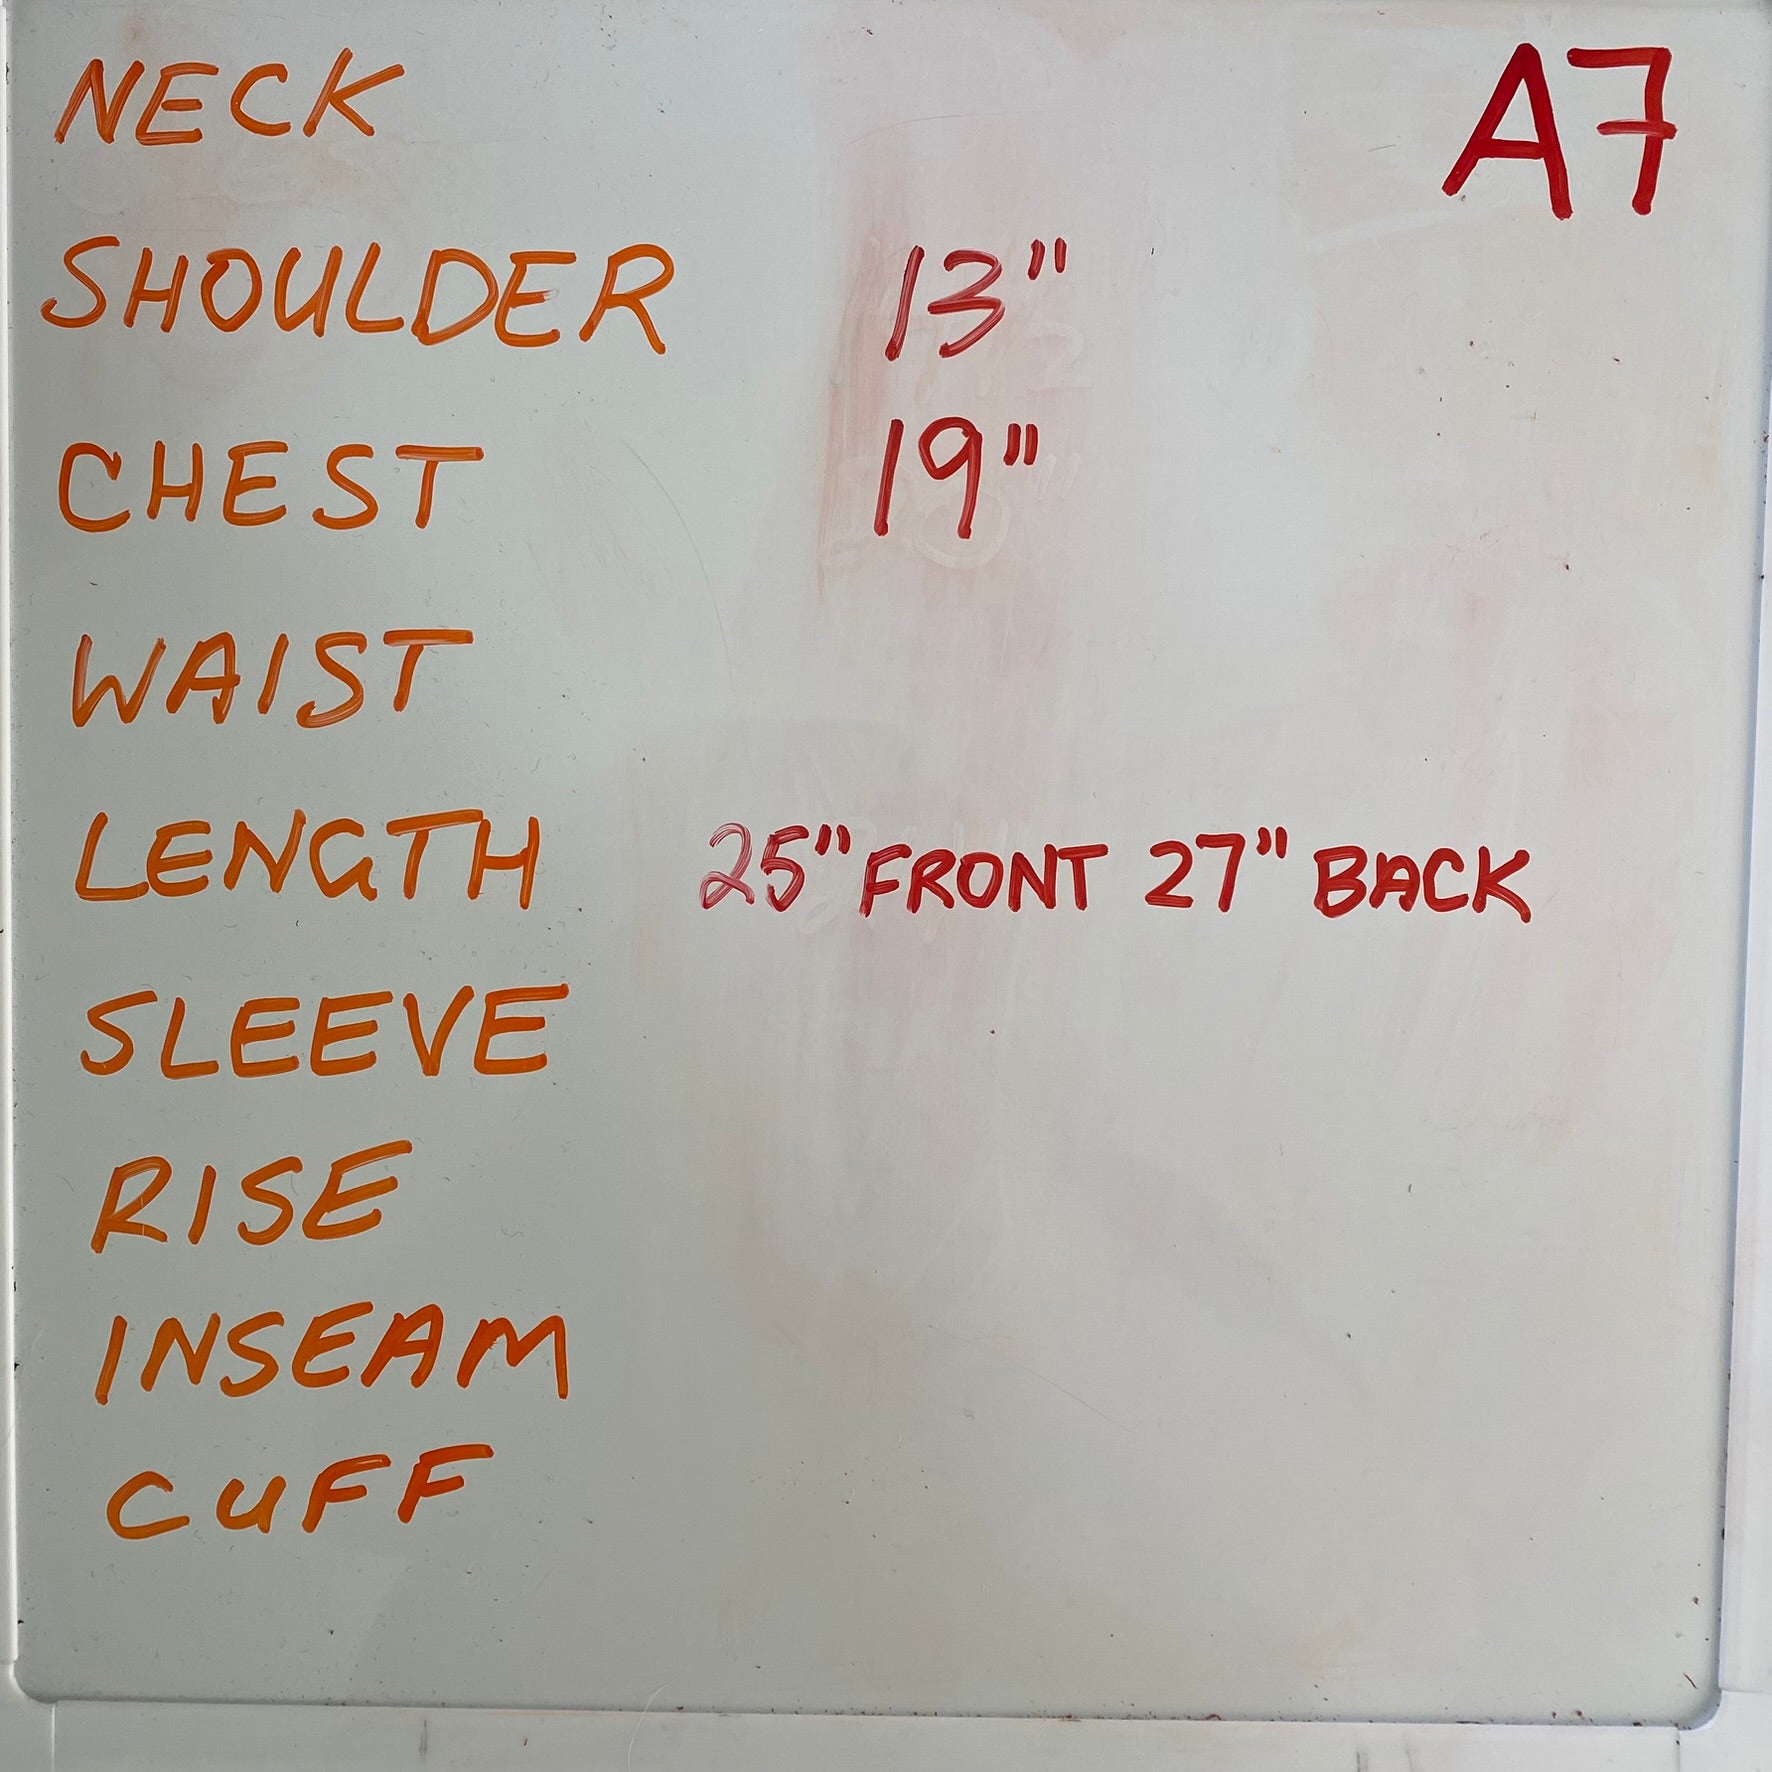 NECK
A7
SHOULDER 13"
CHEST 19"
WAIST
LENGTH 25" FRONT 27" BACK
SLEEVE
RISE
INSEAM
CUFF